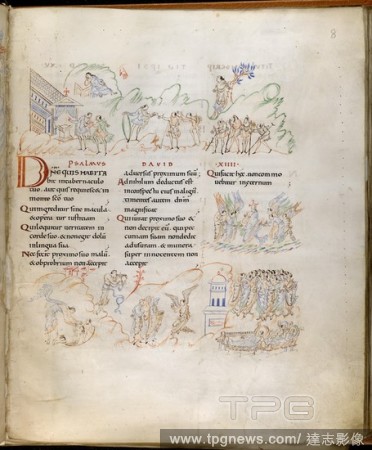 8
PSALMUS DAVID XIIII
DNE QUIS HABITA
bit intabernaculo
tuo. aut quis requiescet in
monte sco tuo
Quiingreditur sine macula
& operatur iustitiam
Quiloquitur ueritatem in
corde suo. & nonegit dolu
inlingua sua
Nec fecit proximo suo malu
& obprobrium non accepit
aduersus proximum suu
Ad nihilum deductus est
inconspectu eius malign
timentes autem dnm
magnificat
Quiiurat proximo suo &
non decepit eu. qui pec
cuniam suam nondedit
adusuram. & munera
super innocentem non
accepit
Quifacit hec. noncommo
uebitur ineternum
TPG
www.tpgnews.com/達志影像